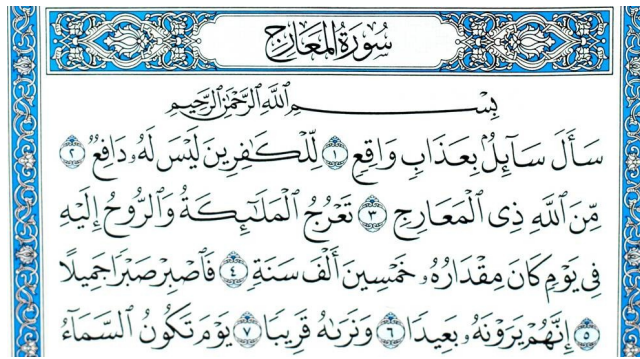 سُورَةُ المَعَارِجِ
بِسْمِ اللَّهِ الرَّحْمَٰنِ الرَّحِيمِ
سَأَلَ سَآئِلُۢ بِعَذَابٖ وَاقِعٖ ١ لِّلۡكَٰفِرِينَ لَيۡسَ لَهُۥ دَافِعٞ ٢
مِّنَ ٱللَّهِ ذِي ٱلۡمَعَارِجِ ٣ تَعۡرُجُ ٱلۡمَلَٰٓئِكَةُ وَٱلرُّوحُ إِلَيۡهِ
فِي يَوۡمٖ كَانَ مِقۡدَارُهُۥ خَمۡسِينَ أَلۡفَ سَنَةٖ ٤ فَٱصۡبِرۡ صَبۡرٗا جَمِيلًا
٥ إِنَّهُمۡ يَرَوۡنَهُۥ بَعِيدٗا ٦ وَنَرَىٰهُ قَرِيبٗا ٧ يَوۡمَ تَكُونُ ٱلسَّمَآءُ